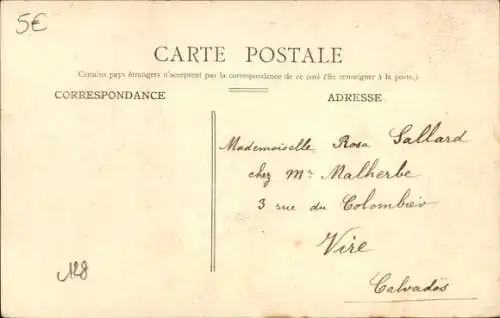 5€
CARTE POSTALE
Certains pays étrangers n'acceptent pas la correspondance de ce coté (Se renseigner à la poste.)
CORRESPONDANCE
ADRESSE
Mademoiselle Rosa Sallard
chez Mr Malherbe
3 rue du Colombier
Vire
Calvados
128